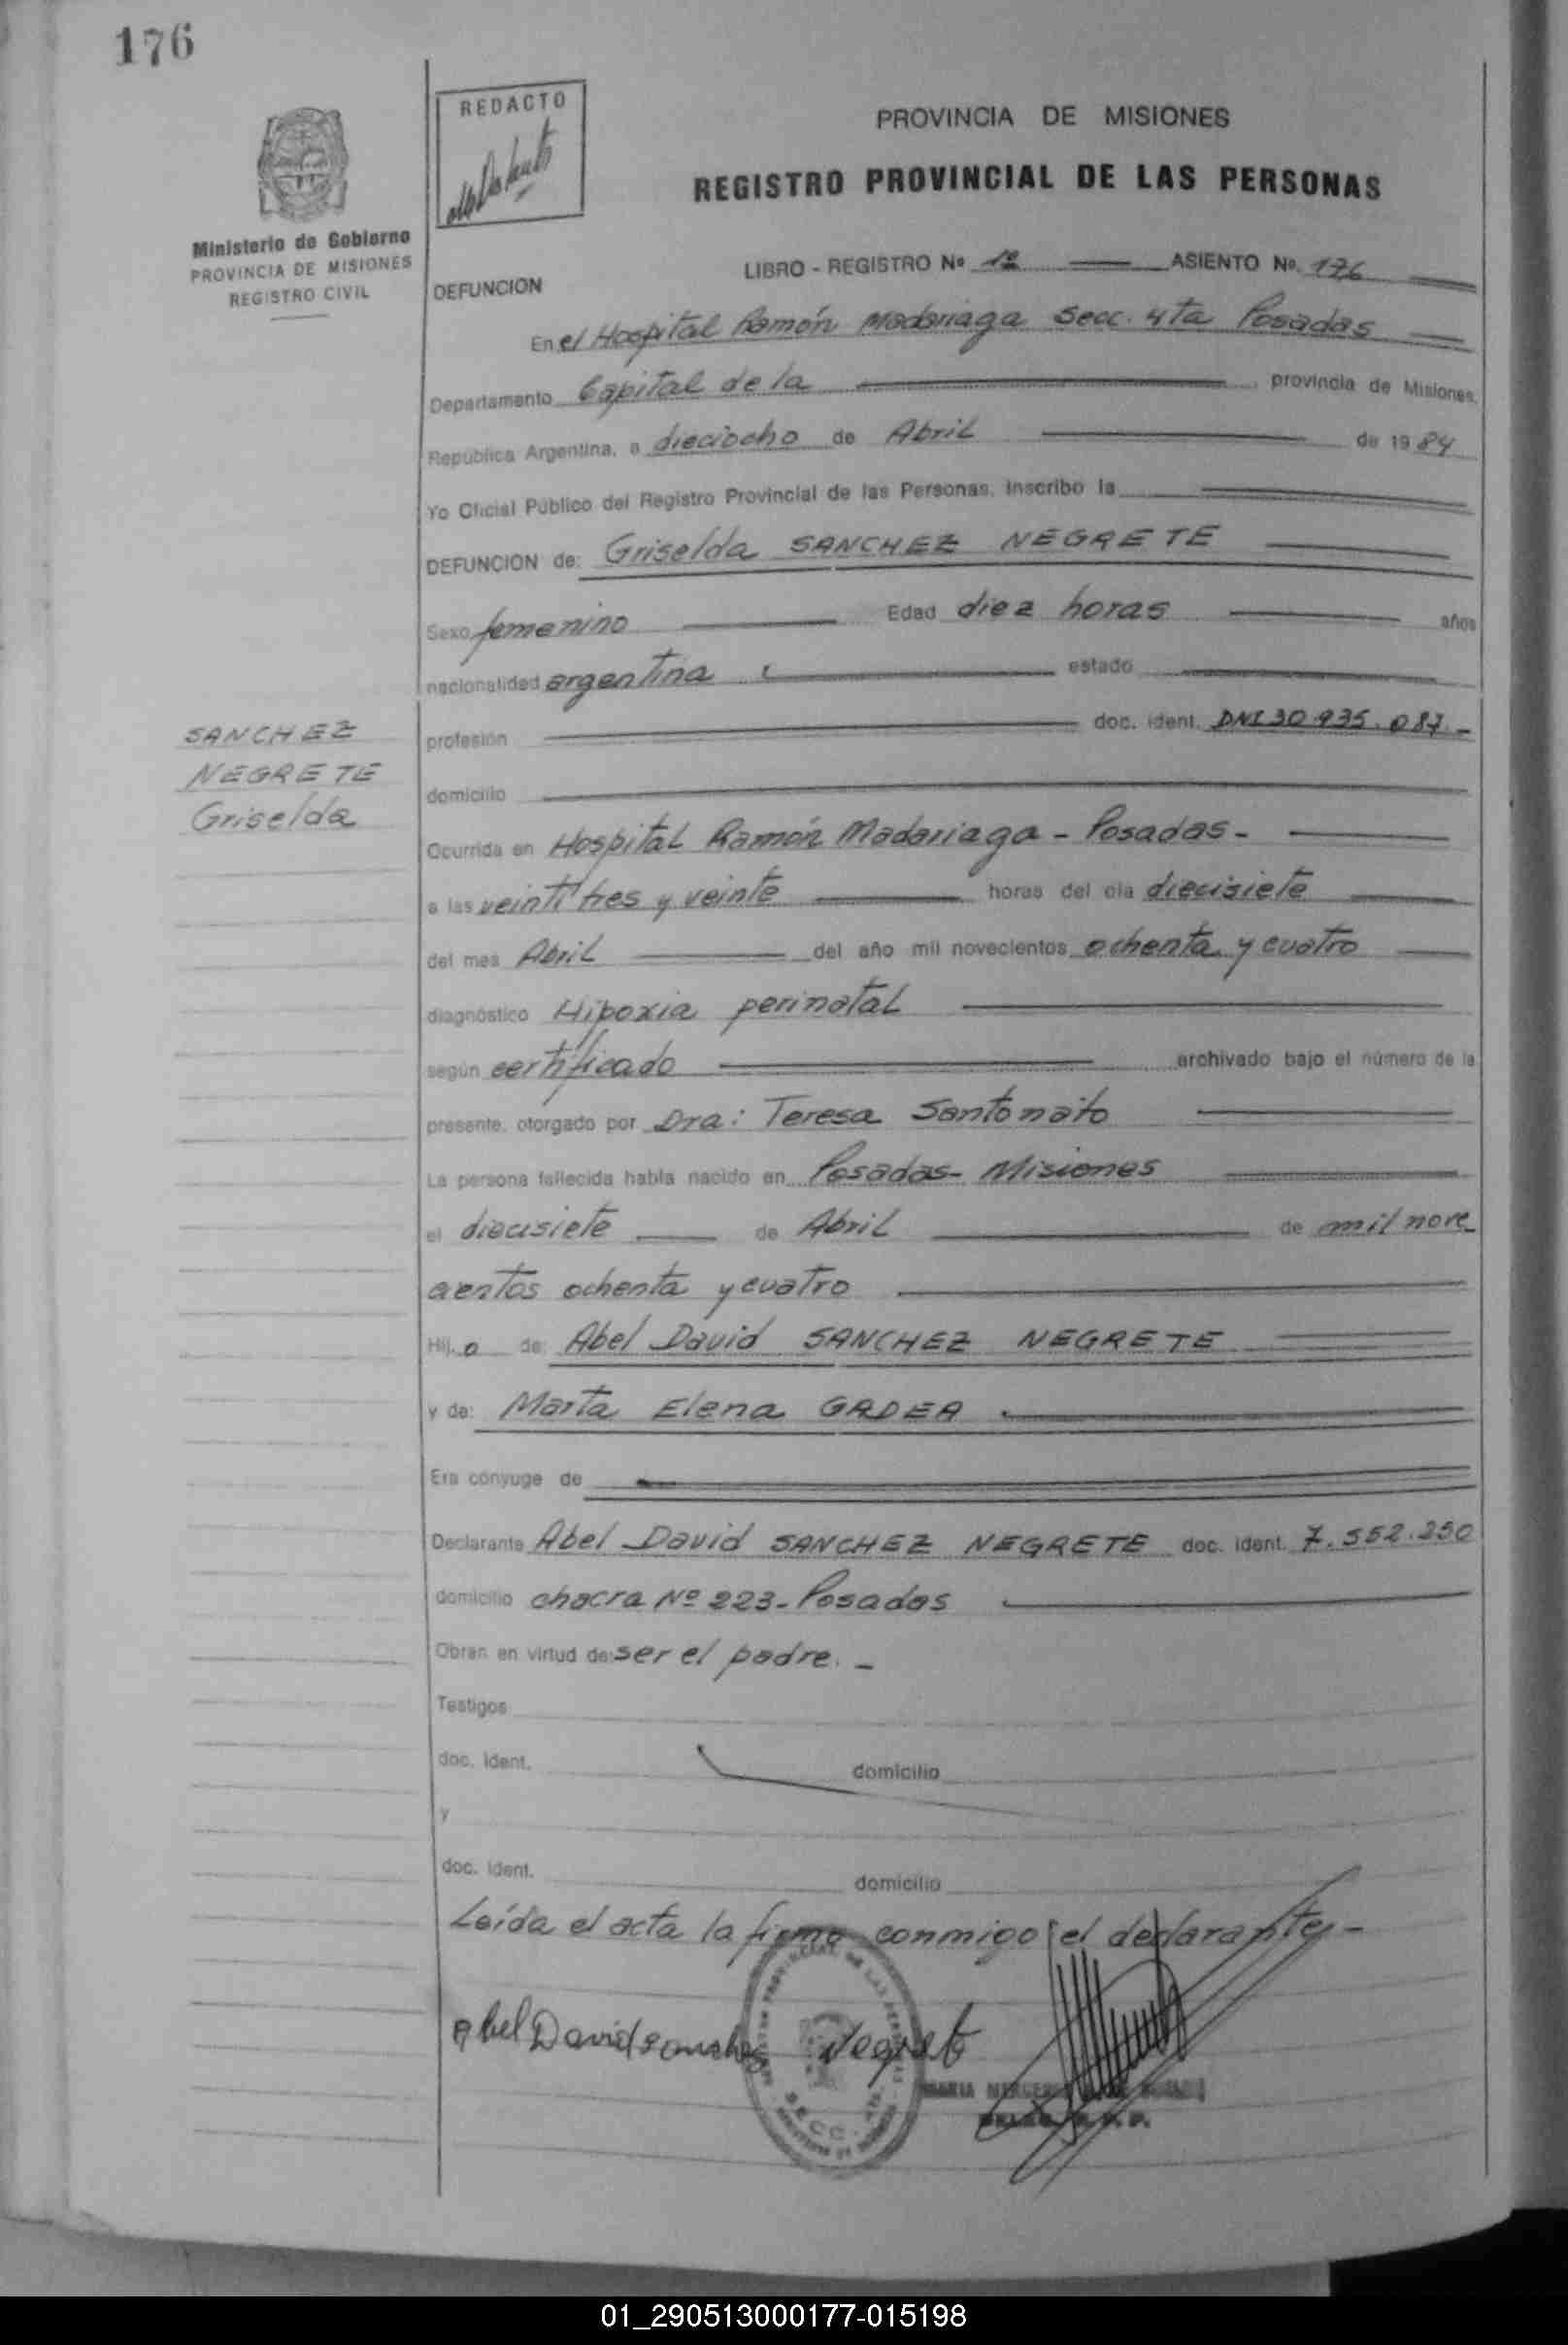 176
REDACTO
Ministerio de Gobierno
PROVINCIA DE MISIONES
REGISTRO CIVIL
PROVINCIA DE MISIONES
REGISTRO PROVINCIAL DE LAS PERSONAS
LIBRO - REGISTRO Nº 1º ASIENTO Nº 176
DEFUNCION
En el Hospital Ramón Madariaga Secc. 4ta Posadas
Departamento Capital de la provincia de Misiones.
República Argentina, a dieciocho de Abril de 1984
Yo Oficial Público del Registro Provincial de las Personas, inscribo la
DEFUNCION de: Griselda SANCHEZ NEGRETE
Sexo femenino Edad diez horas años
nacionalidad argentina estado
SANCHEZ
NEGRETE
Griselda
profesión doc. ident. DNI 30.935.087.-
domicilio
Ocurrida en Hospital Ramón Madariaga - Posadas-
a las veintitres y veinte horas del día diecisiete
del mes Abril del año mil novecientos ochenta y cuatro
diagnóstico Hipoxia perinatal
según certificado archivado bajo el número de la
presente, otorgado por Dra: Teresa Santomaito
La persona fallecida había nacido en Posadas- Misiones
el diecisiete de Abril de mil nove
cientos ochenta y cuatro
Hijo de: Abel David SANCHEZ NEGRETE
y de: Marta Elena GADEA
Era cónyuge de
Declarante Abel David SANCHEZ NEGRETE doc. ident. 7.552.250
domicilio chacra Nº 223- Posadas
Obran en virtud de: ser el padre.-
Testigos
doc. ident. domicilio
y
doc. ident. domicilio
Leída el acta la firma conmigo el declarante.-
Abel David Sanchez Negrete
MARIA
01_290513000177-015198